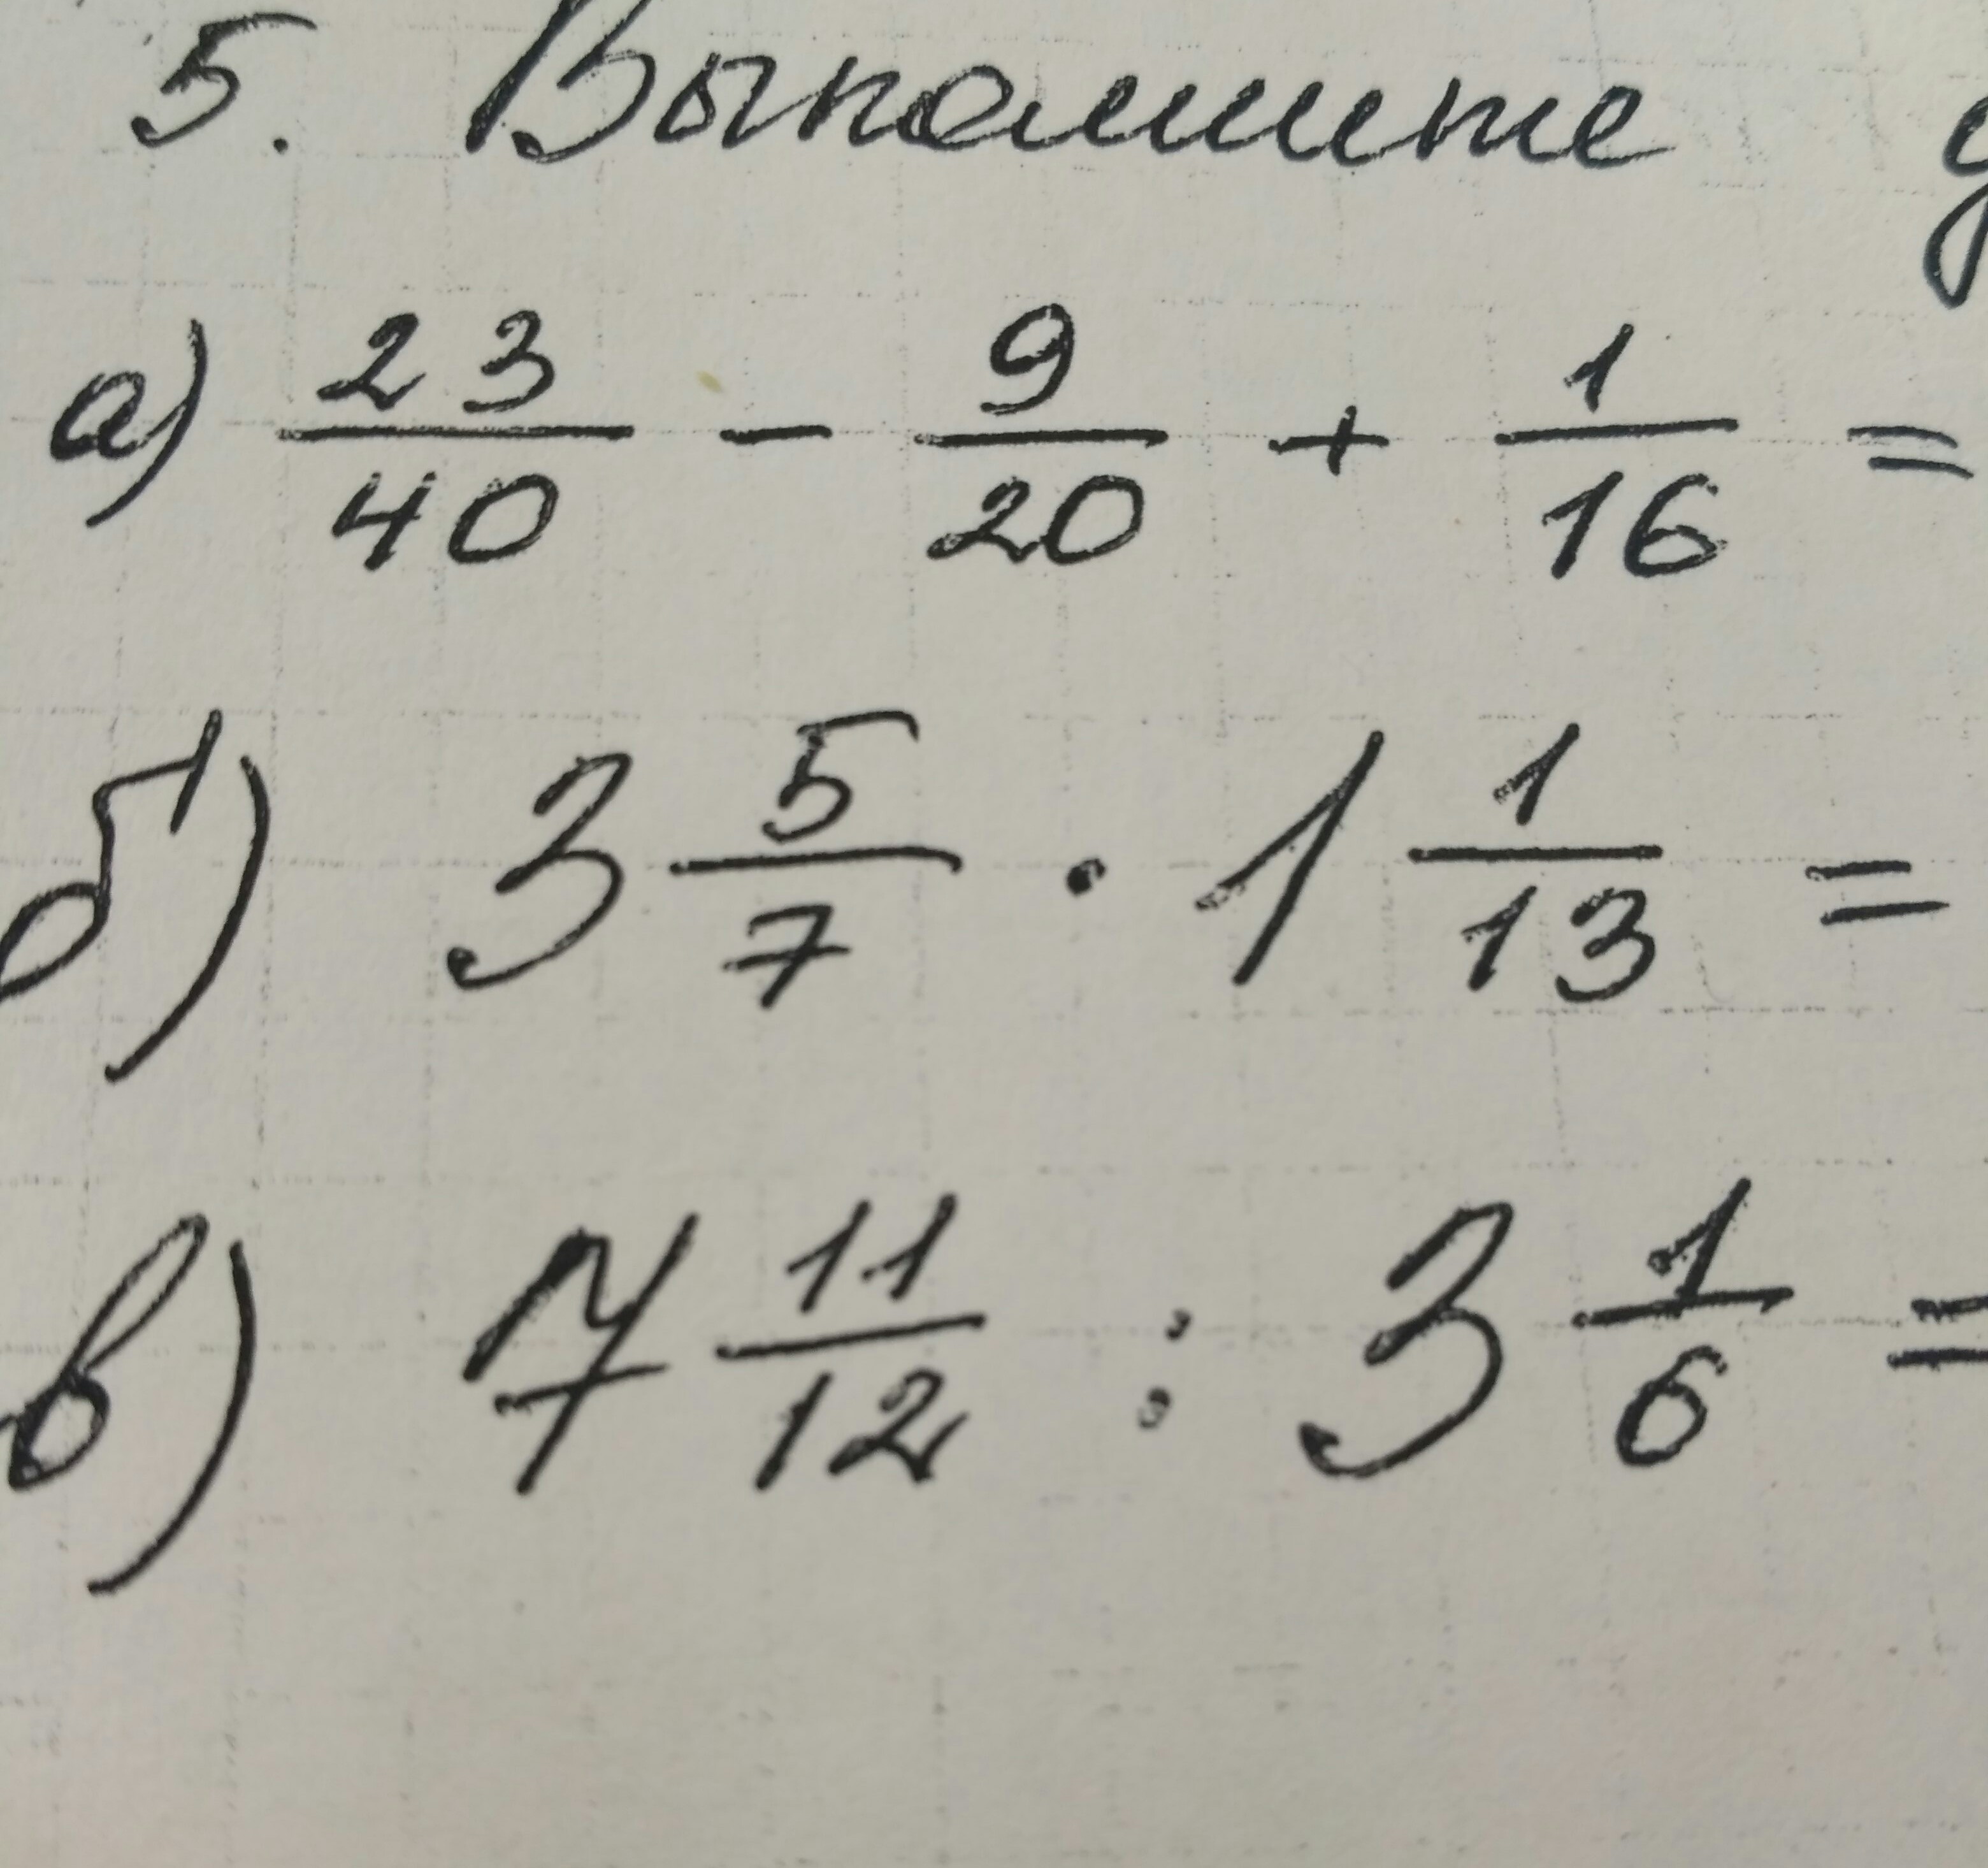 5. Выполните
а) 23/40 - 9/20 + 1/16 =
б) 3 5/7 · 1 1/13 =
в) 7 11/12 : 3 1/6 =